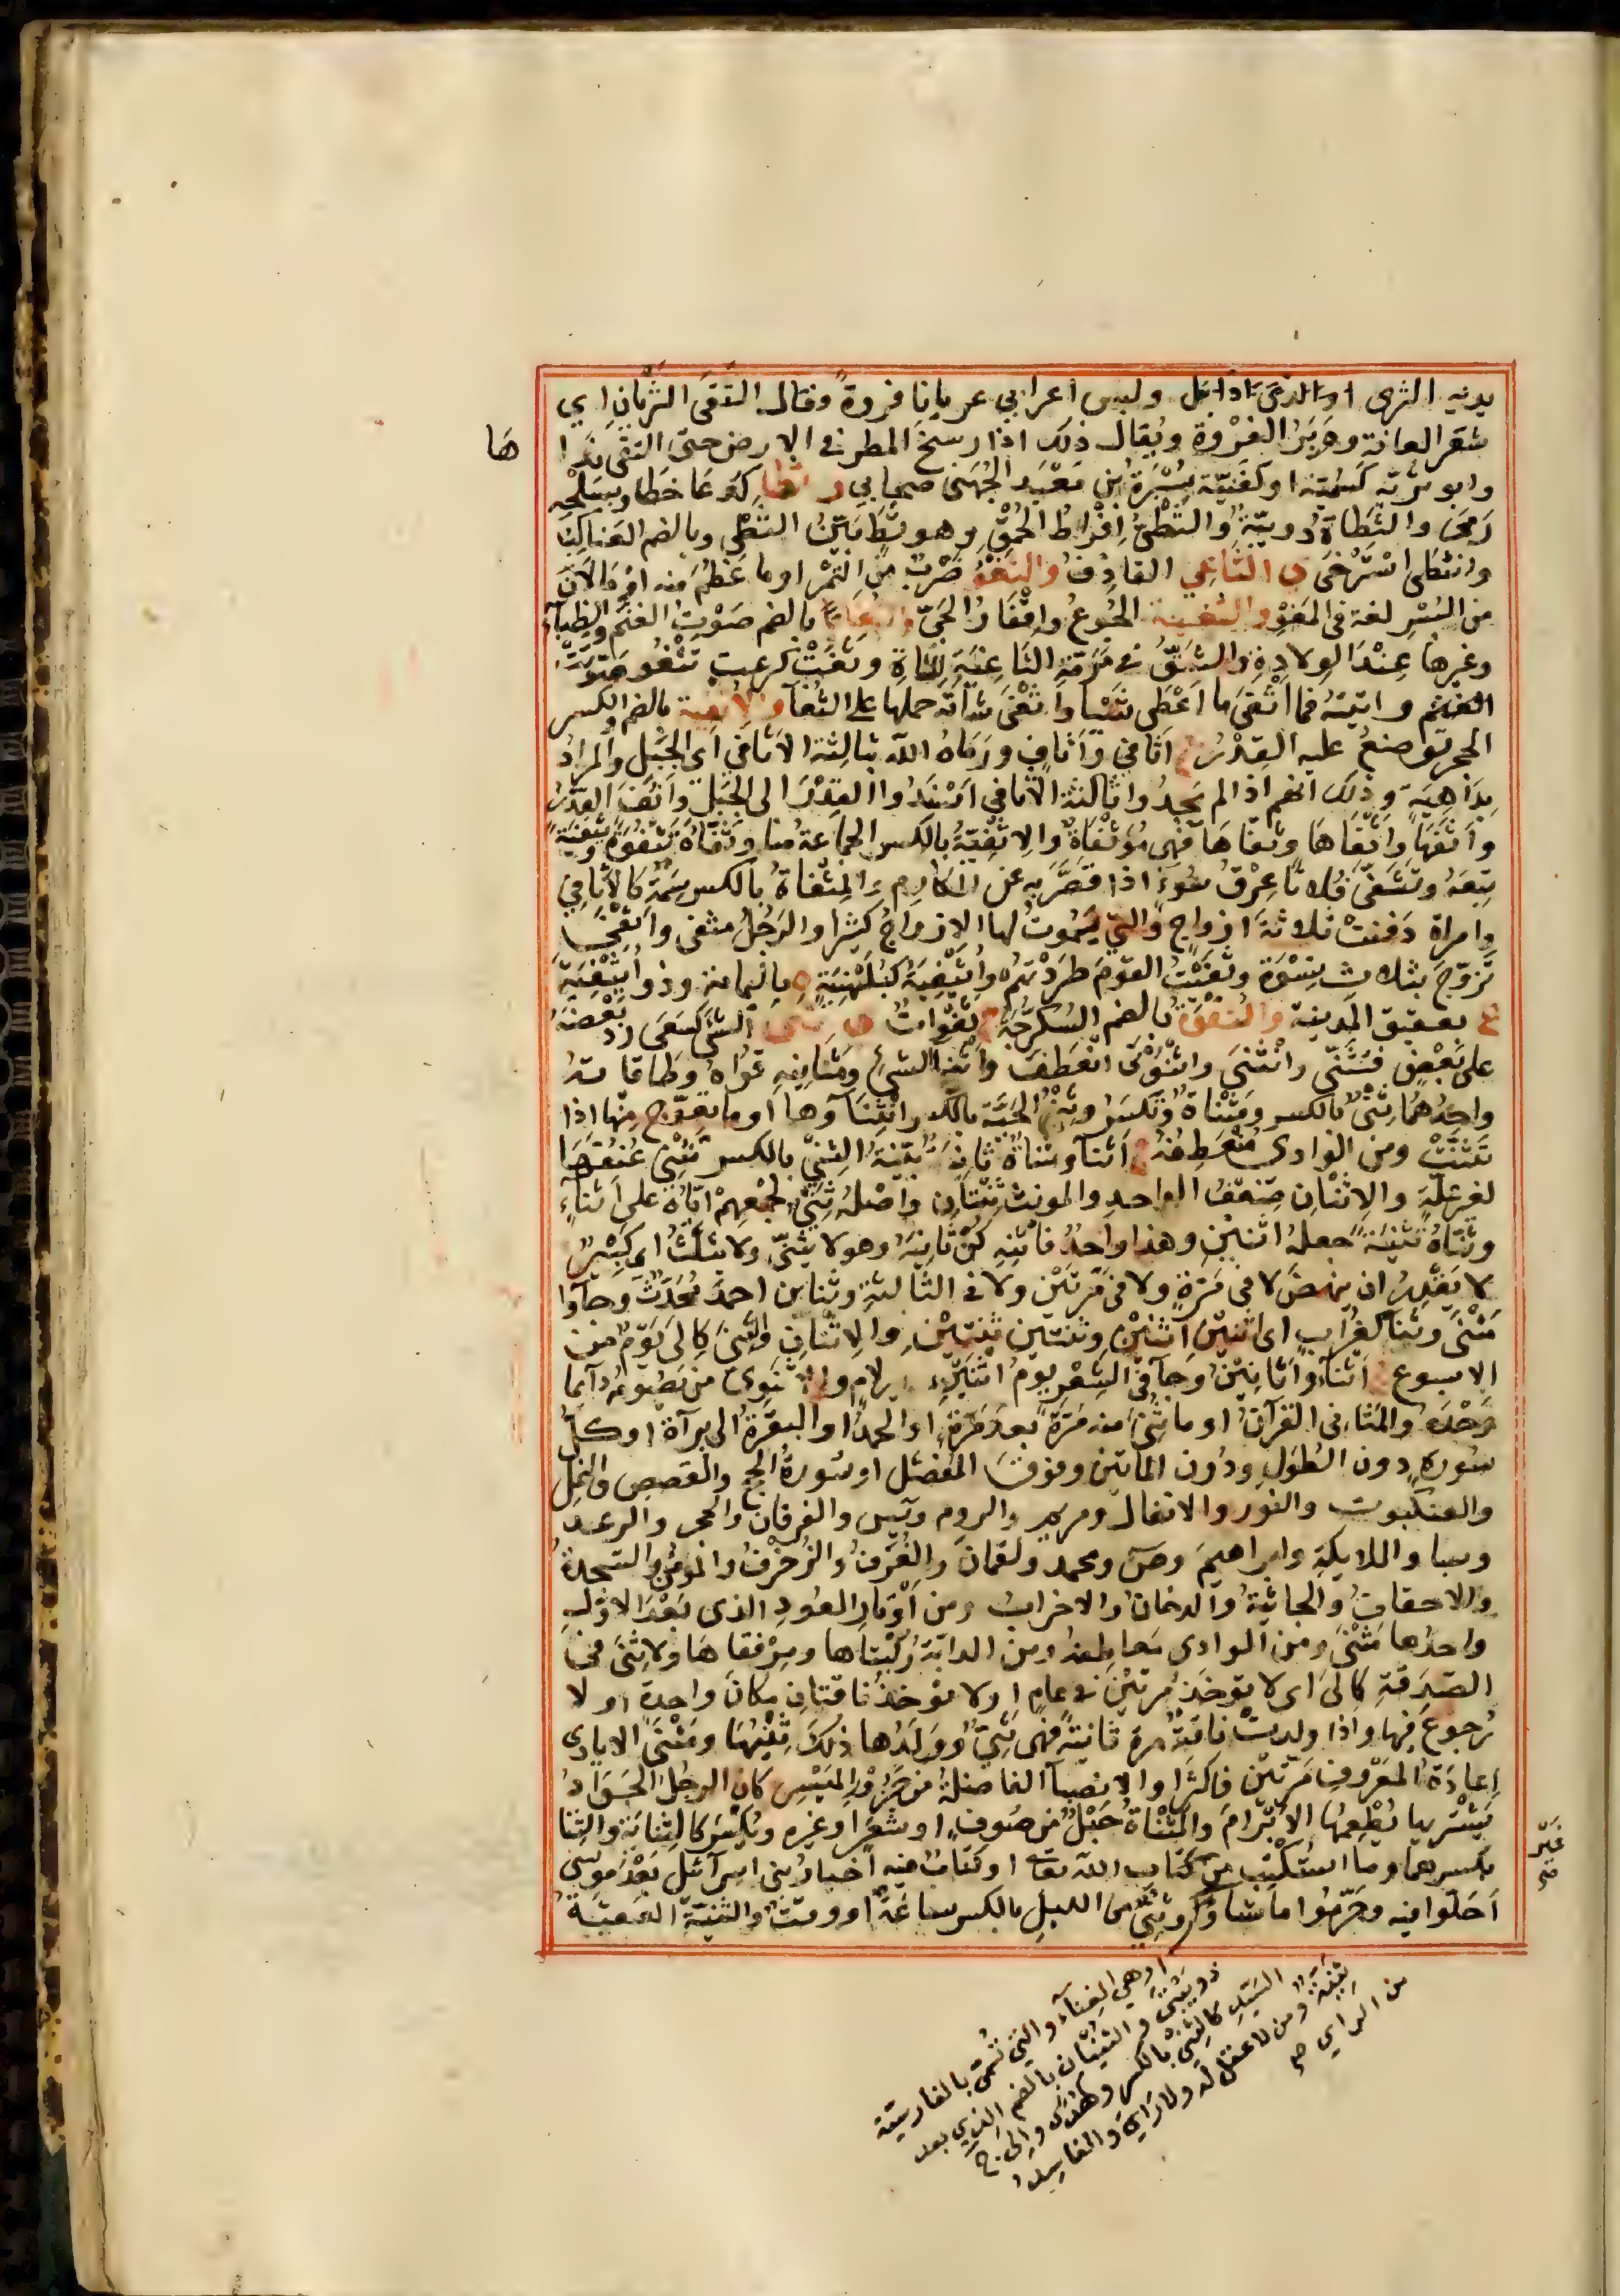 يدنيه الثرى او الذى اذا بل ولبس اعرابي عريانا فروة وقال التقى الثريان اي
شعر العانة ووبر الفروة ويقال ذلك اذا رسخ المطر في الارض حتى التقى ندا
ها
وابو ثرية كسمية او كغنية سبرة بن معبد الجهني صحابي و ثطا كدعا خطا وبسلحه
رمى والثطاة دويبة والثطى افراط الحمق وهو ثط بين الثطى وبالضم العناكب
وانثطى استرخى ى الثاعي القاذف والثعو ضرب من التمر او ما عظم منه او ما لان
من البسر لغة في المعو و الثغية الجوع واقفار الحي والثغاء بالضم صوت الغنم والظباء
وغيرها عند الولادة والشق في مرمة الثاغية للشاة وثغت كدعت تثغو صوتت
الغنم واتيته فما اثغى ما اعطى شيا واثغى شاته حملها على الثغاء والاثفية بالضم والكسر
الحجر توضع عليه القدر ج اثافي واثاف ورماه الله بثالثة الاثافي اي الجبل والمراد
بداهية وذلك انهم اذا لم يجدوا ثالثة الاثافي اسندوا القدر الى الجبل واثف القدر
واثفها واثفاها وثفاها فهي مؤثفاة والاثفية بالكسر الجماعة منا وثفاه يثفوه ويثفيه
تبعه وتثفى فلانا عرق سوء اذا قصر به عن المكارم والمثفاة بالكسر سمة كالاثافي
وامراة دفنت ثلاثة ازواج والتي يموت لها الازواج كثيرا والرجل مثفى واثفى
تزوج بثلاث نسوة وثفيت القوم طردتهم واثيفية كبلهنية ة باليمامة وذو اثيفية
ع بعقيق المدينة والثقوة بالضم السكرجة ج ثقوات ى ثنى الشي كسعى رد بعضه
على بعض فتثنى وانثنى واثنونى انعطف واثناء الشئ ومثانيه قواه وطاقاته
واحدهما ثنى بالكسر ومثناة وتكسر وثنى الحية بالكسر انثناؤها او ما تعوج منها اذا
تثنت ومن الوادى منعطفه ج اثناء وشاة ثانية بينة الثنى بالكسر تثنى عنقها
لغير علة والاثنان ضعف الواحد والمونث ثنتان واصله ثنى لجمعهم اياه على اثناء
وثناه تثنية جعله اثنين وهذا واحد فاثنه كن ثانيه وهو لا يثنى ولا يثلث اى كبير
لا يقدر ان ينهض لا في مرة ولا في مرتين ولا في الثالثة وثنا بن احمد محدث وجاوا
مثنى وثناء كغراب اى اثنين اثنين وثنتين ثنتين والاثنان والثنى كالى يوم من
الاسبوع ج اثناء واثانين وجاء في الشعر يوم اثنين بلا لام والاثنوى من يصومه دآئما
وحده والمثانى القرآن او ما ثنى منه مرة بعد مرة او الحمد او البقرة الى برآة او كل
سورة دون الطول ودون المايتين وفوق المفصل او سورة الحج والقصص والنمل
والعنكبوت والنور والانفال ومريم والروم ويس والفرقان والحجر والرعد
وسبا والملايكة وابراهيم وص ومحمد ولقمان والغرف والزخرف والمومن والسجدة
والاحقاف والجاثية والدخان والاحزاب ومن اوتار العود الذى بعد الاول
واحدها مثنى ومن الوادى معاطفه ومن الدابة ركبتاها ومرفقاها ولا ثنى في
الصدقة كالى اى لا توخذ مرتين في عام او لا توخذ ناقتان مكان واحدة او لا
رجوع فيها واذا ولدت ناقة مرة ثانية فهى ثنى وولدها ذلك ثنيها ومثنى الايادى
اعادة المعروف مرتين فاكثر او الانصبآ الفاضلة من جزور الميسر كان الرجل الجواد
يشتريها يطعمها الابرام والمثناة حبل من صوف او شعر او غيره ويكسر كالثناية والثنا
بكسرهما وما استكتب من كتاب الله تعا او كتاب فيه اخبار بنى اسرآئيل بعد موسى
غير
صح
احلوا فيه وحرموا ما شاؤا وثنى من الليل بالكسر ساعة او وقت والثنية العقبة
او هي الغناء والتي تسمى بالفارسية
دوبيتى والثنيان بالضم الذي بعد
السيد كالثنى بالكسر وكهدى والى ج
ثنية ومن لا عقل له ولا راى والفاسد
من الراي صح